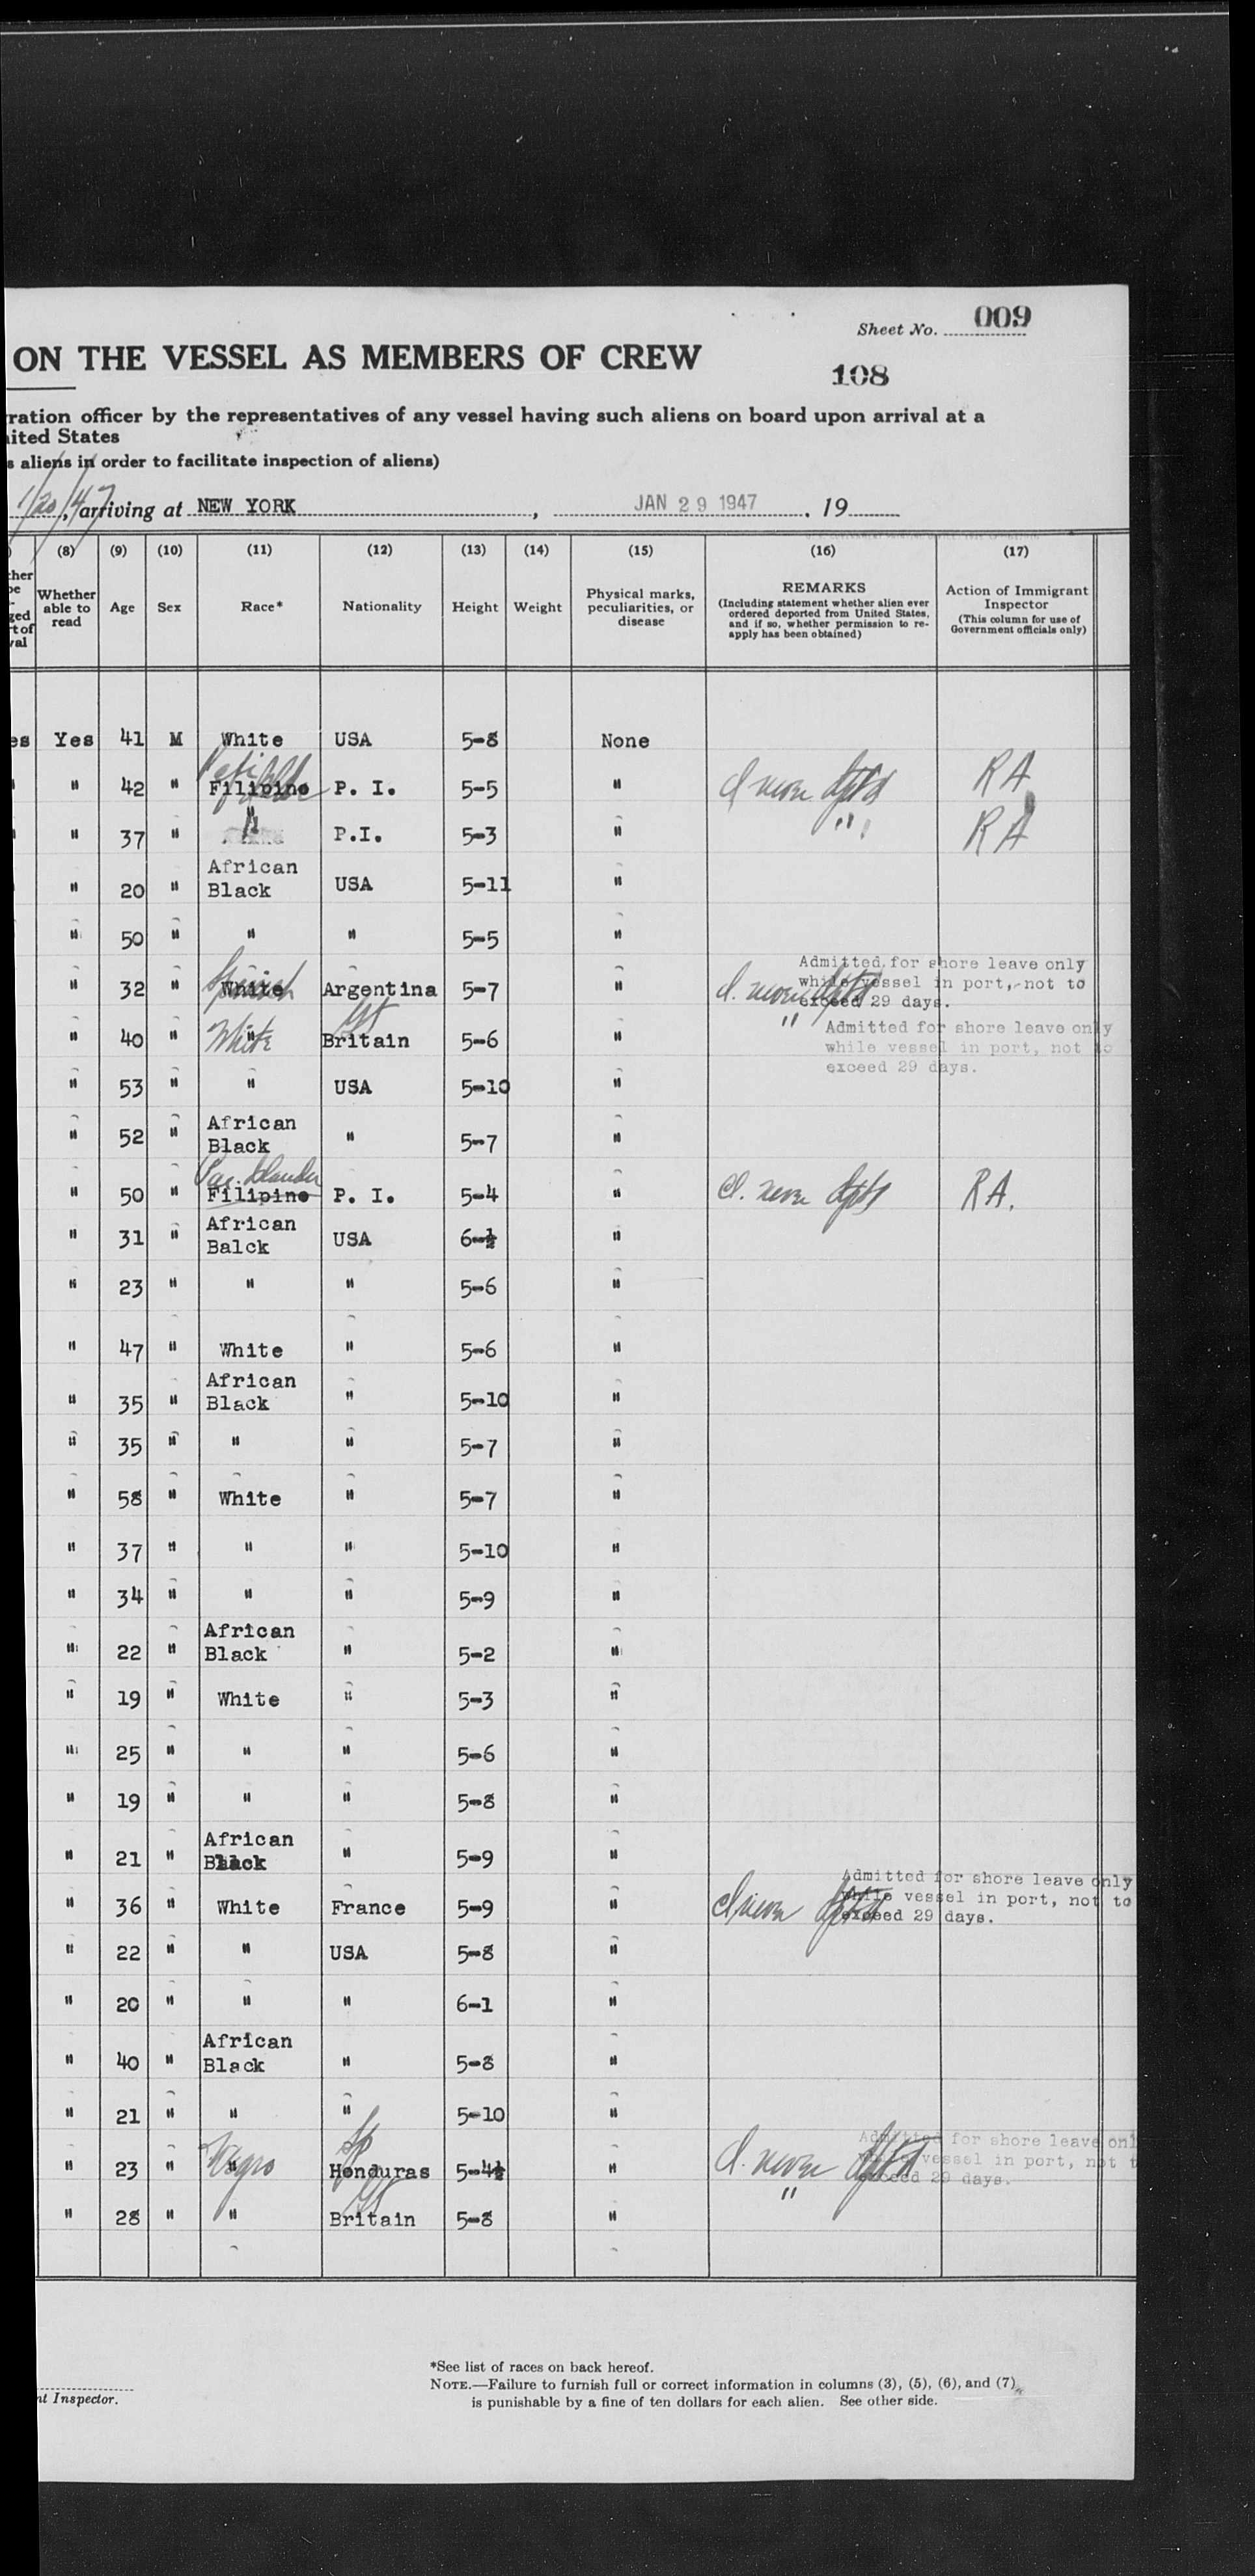 Sheet No. 009
ON THE VESSEL AS MEMBERS OF CREW
108
ration officer by the representatives of any vessel having such aliens on board upon arrival at a
nited States
s aliens in order to facilitate inspection of aliens)
1/20/47, arriving at NEW YORK, JAN 29 1947, 19
(8) (9) (10) (11) (12) (13) (14) (15) (16) (17)
Whether able to read Age Sex Race* Nationality Height Weight Physical marks, peculiarities, or disease REMARKS (Including statement whether alien ever ordered deported from United States, and if so, whether permission to reapply has been obtained) Action of Immigrant Inspector (This column for use of Government officials only)
es Yes 41 M White USA 5-8 None
" 42 " Filipino P. I. 5-5 " Cl never RA
" 37 " " P.I. 5-3 " " RA
" 20 " African Black USA 5-11 "
" 50 " " " 5-5 "
" 32 " White Spanish Argentina 5-7 " Cl. never Admitted for shore leave only while vessel in port, not to exceed 29 days.
" 40 " " White Britain 5-6 " " Admitted for shore leave only while vessel in port, not to exceed 29 days.
" 53 " " USA 5-10 "
" 52 " African Black " 5-7 "
" 50 " Filipino Pac. Islander P. I. 5-4 " Cl. never RA.
" 31 " African Balck USA 6-½ "
" 23 " " " 5-6 "
" 47 " White " 5-6 "
" 35 " African Black " 5-10 "
" 35 " " " 5-7 "
" 58 " White " 5-7 "
" 37 " " " 5-10 "
" 34 " " " 5-9 "
" 22 " African Black " 5-2 "
" 19 " White " 5-3 "
" 25 " " " 5-6 "
" 19 " " " 5-8 "
" 21 " African Black " 5-9 "
" 36 " White France 5-9 " Cl never Admitted for shore leave only while vessel in port, not to exceed 29 days.
" 22 " " USA 5-8 "
" 20 " " " 6-1 "
" 40 " African Black " 5-8 "
" 21 " " " 5-10 "
" 23 " " Negro Honduras 5-4½ " Cl. never Admitted for shore leave onl vessel in port, not t exceed 29 days.
" 28 " " Britain 5-8 " "
*See list of races on back hereof.
nt Inspector.
NOTE.—Failure to furnish full or correct information in columns (3), (5), (6), and (7)
is punishable by a fine of ten dollars for each alien. See other side.